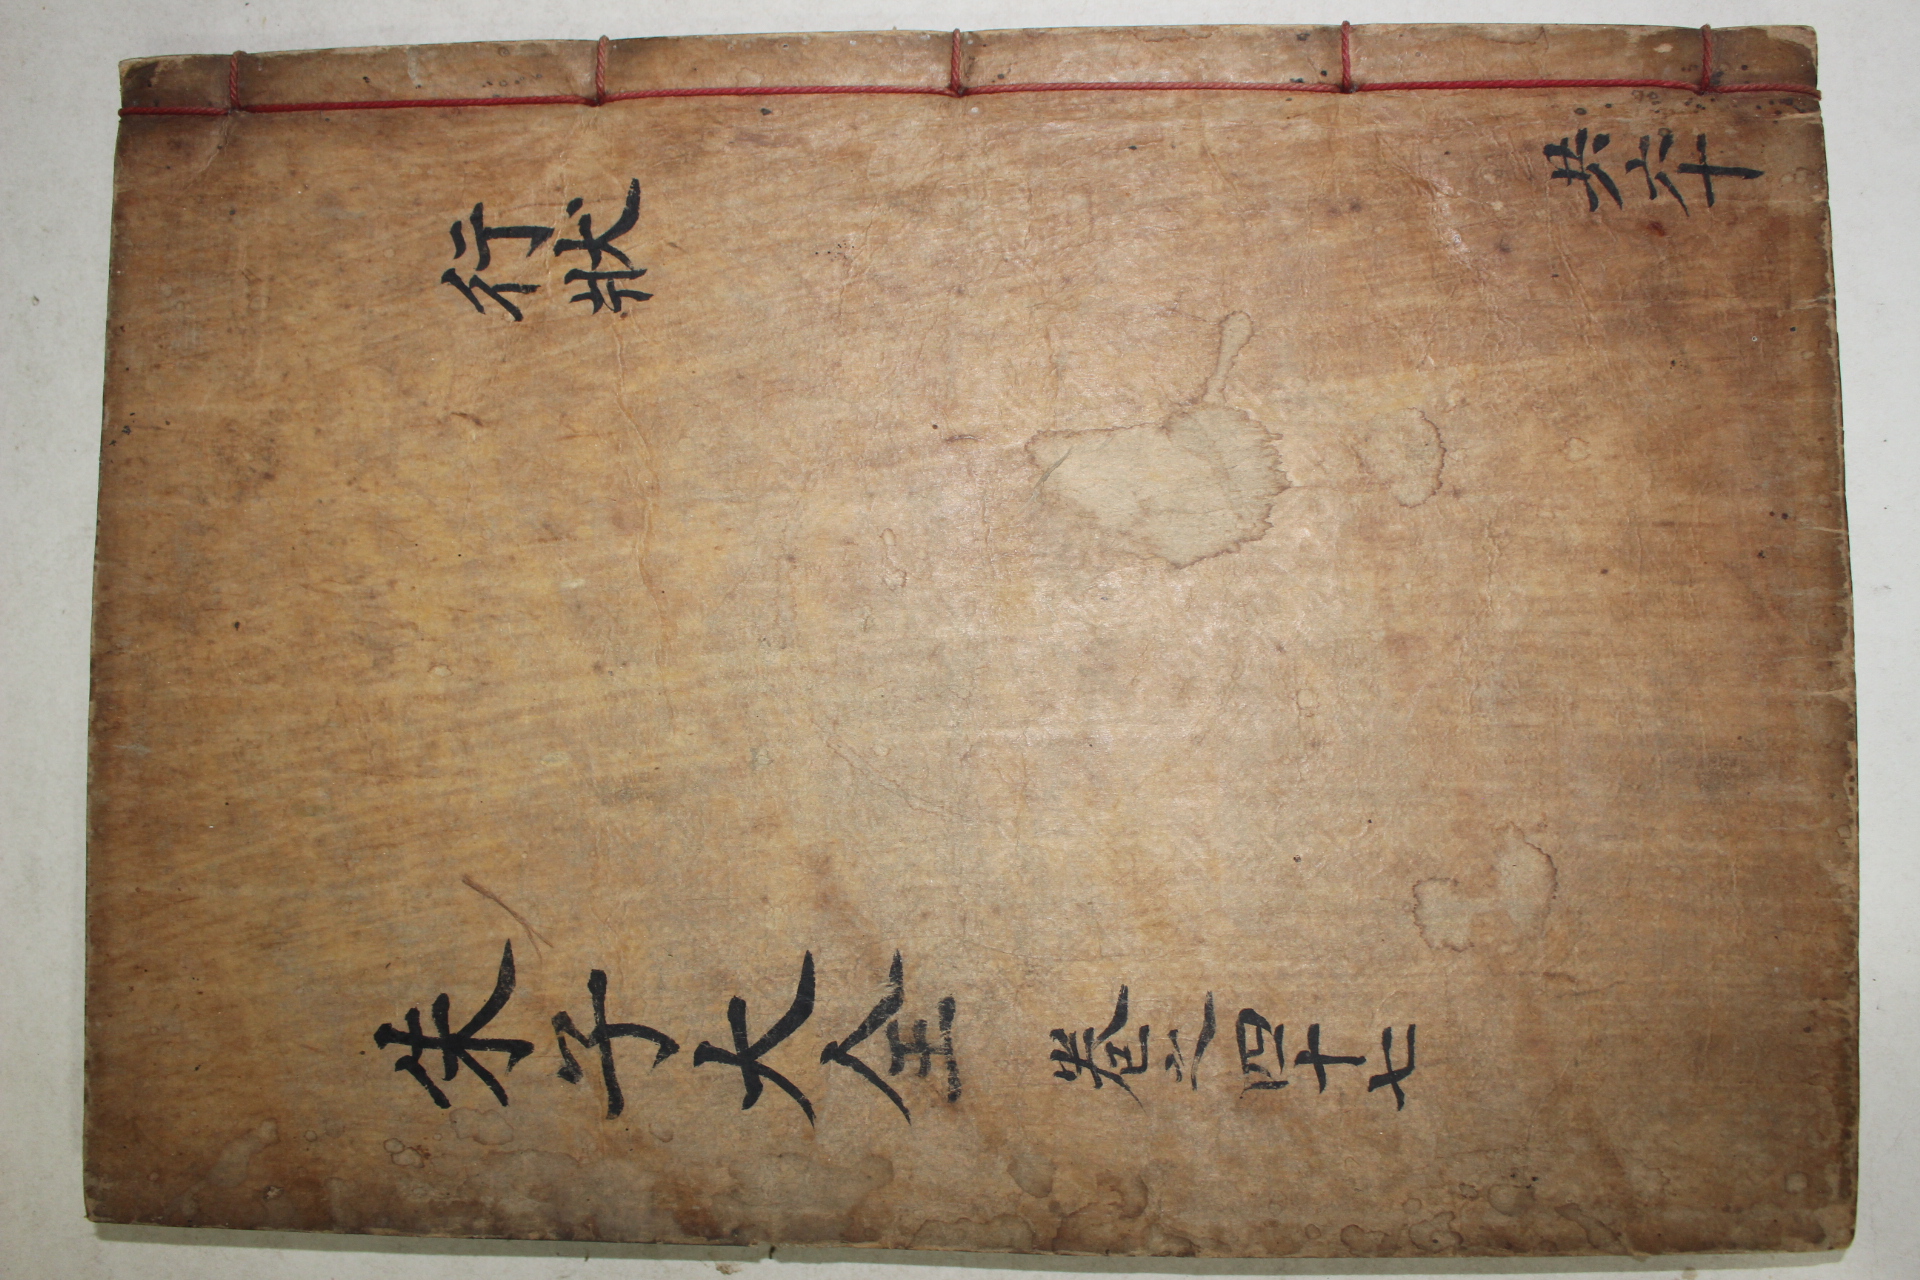 朱子大全 卷之四十七
行狀
共六十